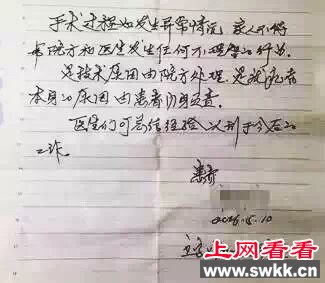 手术过程如发生异常情况，家人不得
与院方和医生发生任何不理智的行为。
是技术原因由院方处理，是我患者
本身的原因由患者自身负责。
医生们可总结经验，以利于今后的
工作。
患者
5.10
上网看看
www.swkk.cn